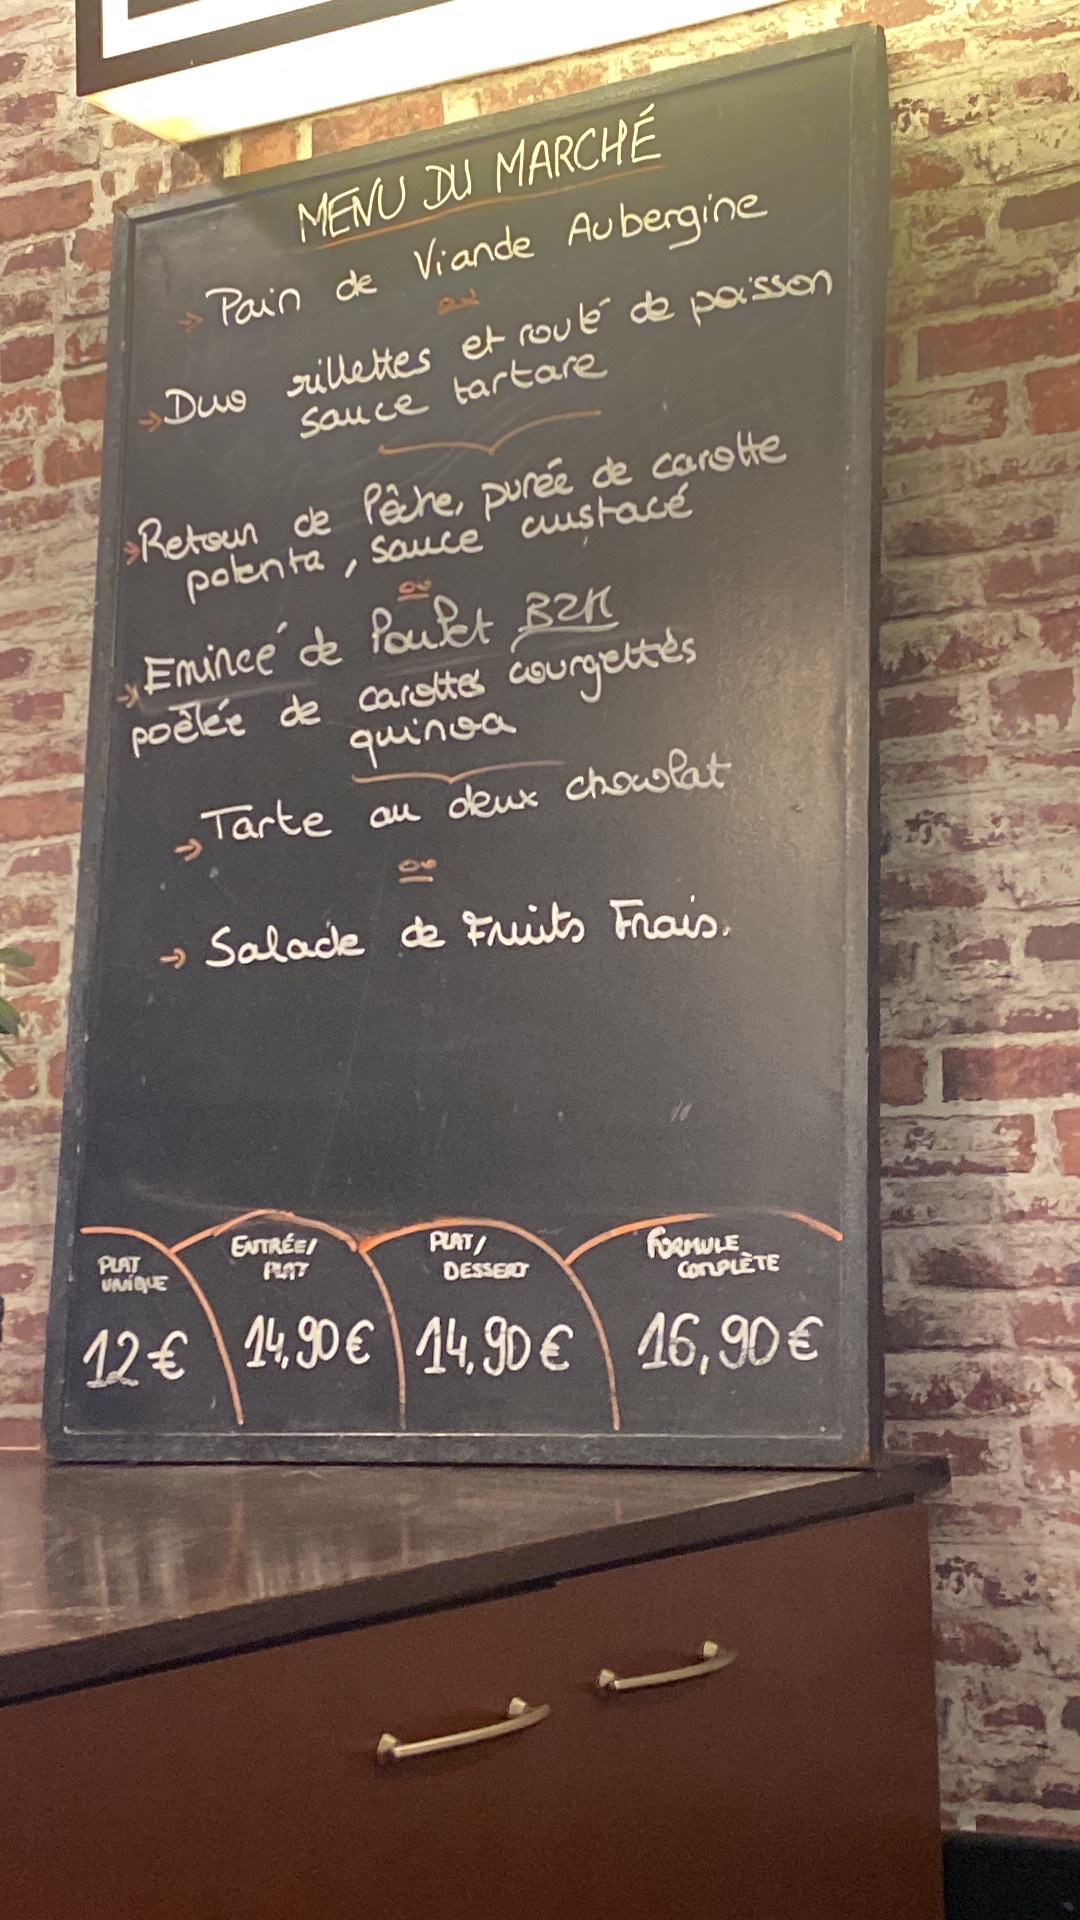 MENU DU MARCHÉ
→ Pain de Viande Aubergine
ou
→ Duo rillettes et roulé de poisson
sauce tartare
→ Retour de Pêche, purée de carotte
polenta, sauce crustacé
ou
→ Emincé de Poulet BZH
poêlée de carottes courgettes
quinoa
→ Tarte au deux chocolat
ou
→ Salade de Fruits Frais.
PLAT
UNIQUE
12 €
ENTRÉE/
PLAT
14,90 €
PLAT/
DESSERT
14,90 €
FORMULE
COMPLÈTE
16,90 €